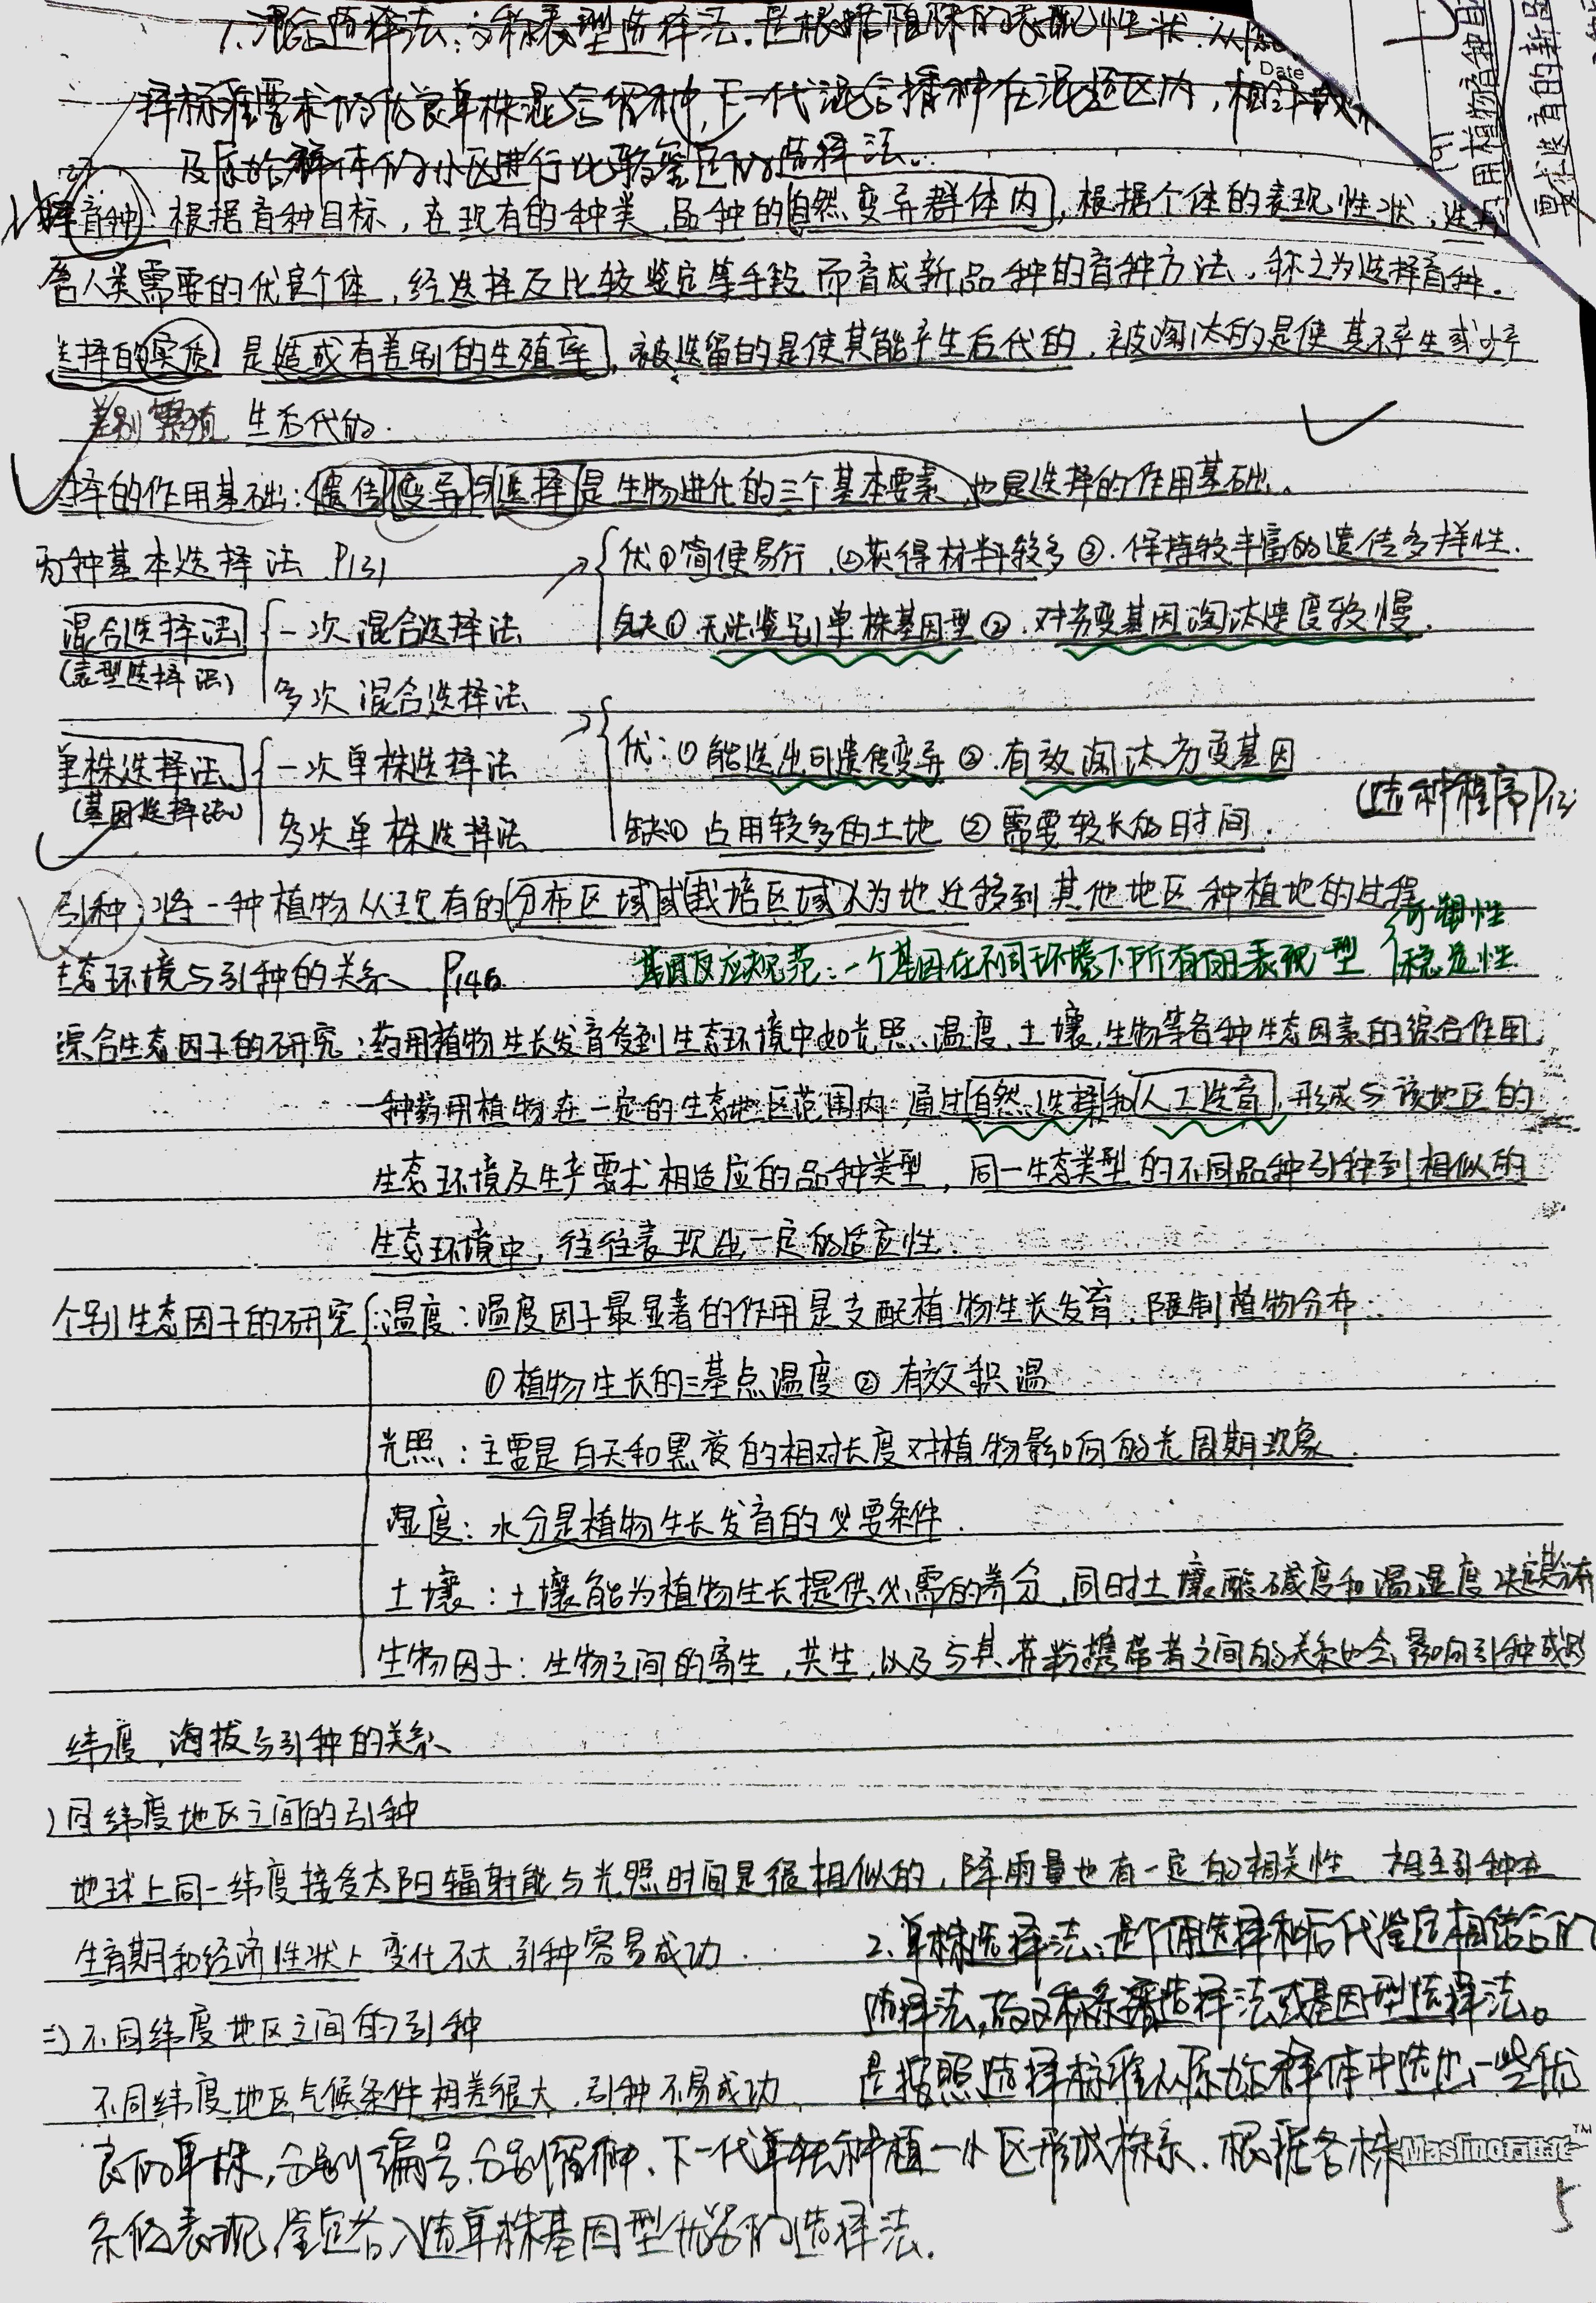 1.混合选择法:又称表型选择法.是根据植株的表型性状.从原
Date
择标准要求的优良单株混合留种,下一代混合播种在混选区内,相
及原始群体的小区进行比较鉴定的选择法.
择育种:根据育种目标,在现有的种类、品种的自然变异群体内,根据个体的表现性状,选
合人类需要的优良个体,经选择及比较鉴定等手段而育成新品种的育种方法,称之为选择育种.
选择的实质是造成有差别的生殖率,被选留的是使其能产生后代的,被淘汰的是使其不产生或少产
差别繁殖 生后代的.
择的作用基础:遗传变异与选择是生物进化的三个基本要素,也是选择的作用基础.
两种基本选择法 P131
优①简便易行.②获得材料较多③.保持较丰富的遗传多样性.
混合选择法
(表型选择法)
一次混合选择法
缺①.无法鉴别单株基因型②.对劣变基因淘汰速度较慢.
多次混合选择法
单株选择法
(基因选择法)
一次单株选择法
优:①能选出可遗传变异②.有效淘汰劣变基因
多次单株选择法
缺①占用较多的土地②需要较长的时间.
(选种程序P13
引种:将一种植物从现有的分布区域或栽培区域人为地迁移到其他地区种植地的过程
生态环境与引种的关系 P146
基因反应规范:一个基因在不同环境下所有的表现型
可塑性
稳定性
综合生态因子的研究:药用植物生长发育受到生态环境中如光照、温度、土壤、生物等各种生态因素的综合作用
一种药用植物在一定的生态地区范围内,通过自然选择和人工选育,形成与该地区的
生态环境及生产要求相适应的品种类型,同一生态类型的不同品种引种到相似的
生态环境中,往往表现出一定的适应性.
个别生态因子的研究
温度:温度因子最显著的作用是支配植物生长发育,限制植物分布
①植物生长的三基点温度②有效积温
光照:主要是白天和黑夜的相对长度对植物影响的光周期现象.
湿度:水分是植物生长发育的必要条件.
土壤:土壤能为植物生长提供必需的养分,同时土壤酸碱度和温湿度决定其分布
生物因子:生物之间的寄生,共生,以及与其花粉携带者之间的关系也会影响引种成败
纬度,海拔与引种的关系
)同纬度地区之间的引种
地球上同一纬度接受太阳辐射能与光照时间是很相似的,降雨量也有一定的相关性 相互引种在
生育期和经济性状上变化不大,引种容易成功.
二)不同纬度地区之间的引种
不同纬度地区气候条件相差很大,引种不易成功
2.单株选择法:是个体选择和后代鉴定相结合的
选择法,故又称系谱选择法或基因型选择法。
是按照选择标准从原始群体中选出一些优
良的单株,分别编号,分别留种.下一代单独种植一小区形成株系.根据各株
系的表现,鉴定各入选单株基因型优劣的选择法.
用植物育种
要求选育的新品
5